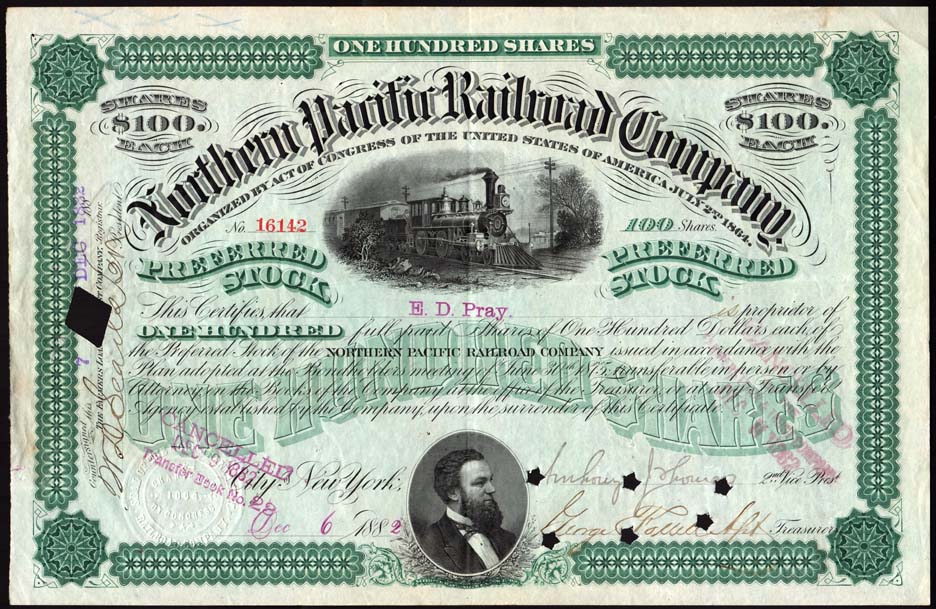 ONE HUNDRED SHARES
SHARES $100. EACH
SHARES $100. EACH
Northern Pacific Railroad Company.
ORGANIZED BY ACT OF CONGRESS OF THE UNITED STATES OF AMERICA JULY 2ND 1864.
No. 16142
100 Shares.
PREFERRED STOCK
PREFERRED STOCK
This Certifies that E. D. Pray. is proprietor of
ONE HUNDRED full paid Shares of One Hundred Dollars each, of
the Preferred Stock of the NORTHERN PACIFIC RAILROAD COMPANY issued in accordance with the
Plan adopted at the Bondholders meeting of June 30th 1875, transferable in person or by
Attorney on the Books of the Company at the office of the Treasurer or at any Transfer
Agency established by the Company, upon the surrender of this Certificate
ONE HUNDRED SHARES
CANCELLED
Transfer Book No. 22
City, New York,
Dec 6 1882
2nd Vice Prest
George Treasurer
Countersigned this 7 DEC 1882
THE FARMERS COMPANY, Registrar
President